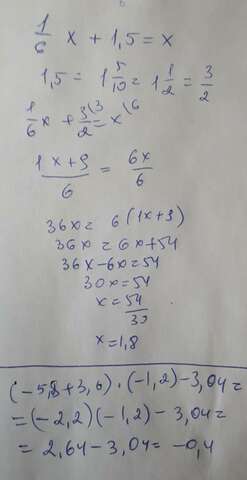 1/6 x + 1,5 = x
1,5 = 1 5/10 = 1 1/2 = 3/2
1/6 x + 3/2 \3 = x \6
(1x+9)/6 = 6x/6
36x = 6(1x+9)
36x = 6x+54
36x-6x=54
30x=54
x=54/30
x=1,8
(-5,8+3,6)·(-1,2)-3,04=
=(-2,2)(-1,2)-3,04=
=2,64-3,04=-0,4